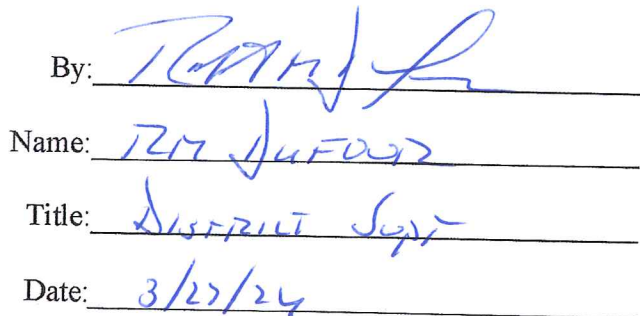 By:
Name: RM DUFOUR
Title: DISTRICT SUPT
Date: 3/27/24